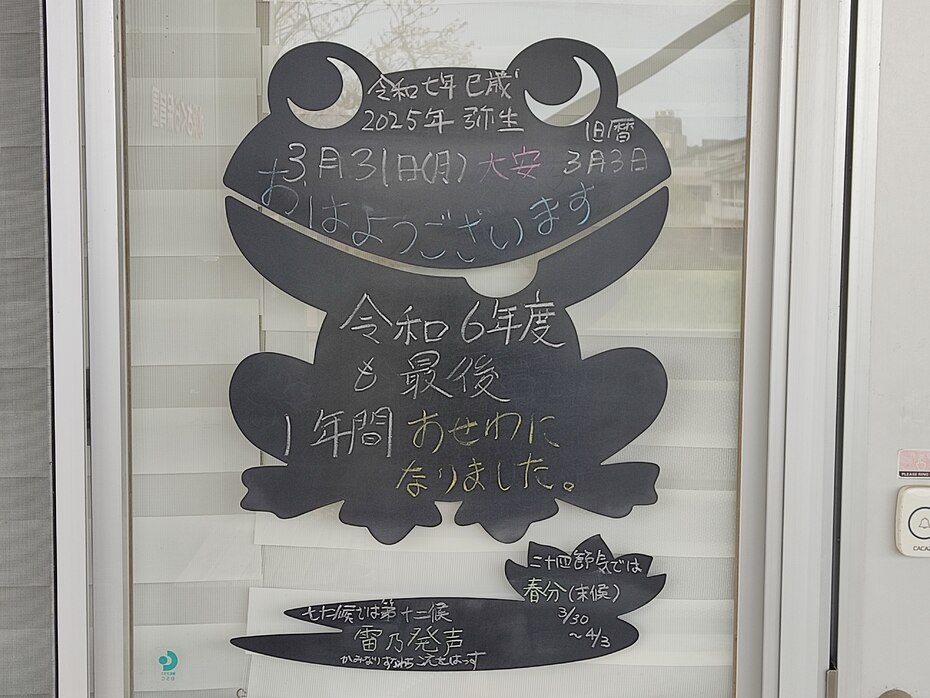 令和七年 巳歳
2025年 弥生
旧暦
3月31日(月) 大安 3月3日
おはようございます
令和6年度
も最後
1年間 おせわに
なりました。
二十四節気では
春分(末候)
3/30
~4/3
七十二候では第十二候
雷乃発声
かみなりすなわち こえをはっす
PLEASE RING